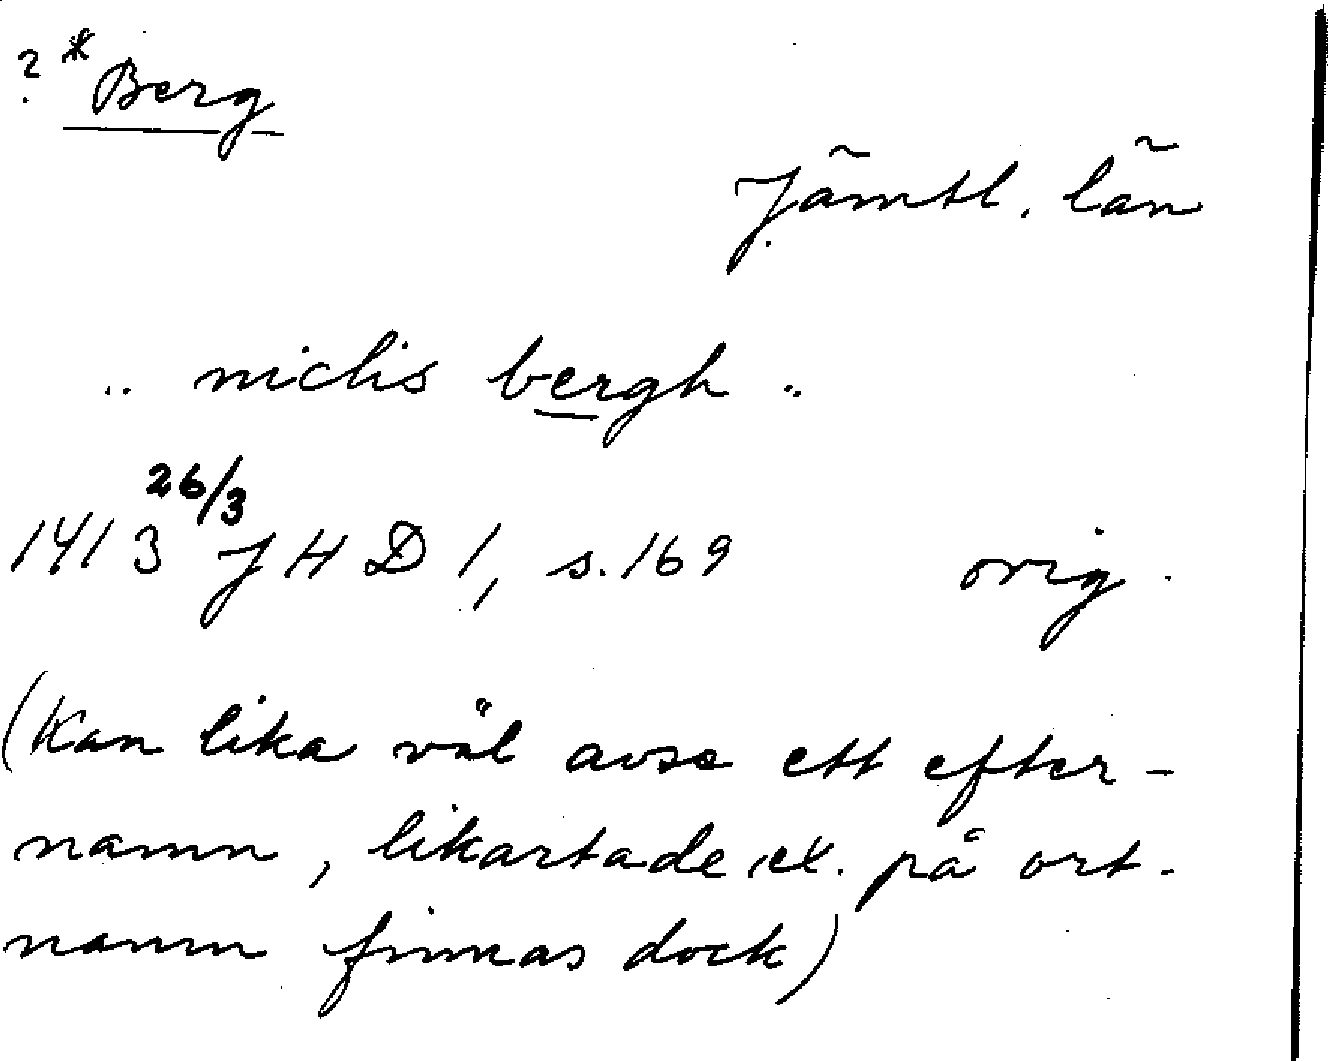 ? * Berg
Jämtl. län
.. niclis bergh ..
1413 26/3 JHD 1, s. 169 orig.
(Kan lika väl avse ett efter-
namn, likartade ex. på ort-
namn finnas dock)